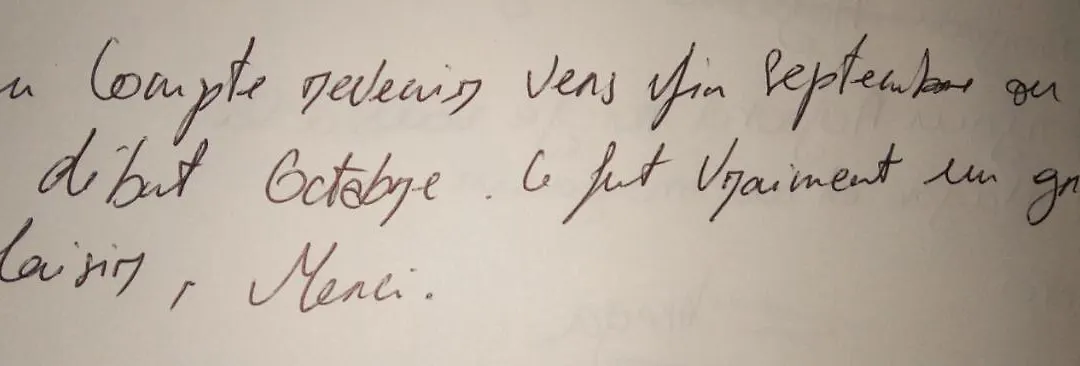 u Compte revenir vers fin Septembre ou
début Octobre. Ce fut vraiment un gr
laisir, Merci.